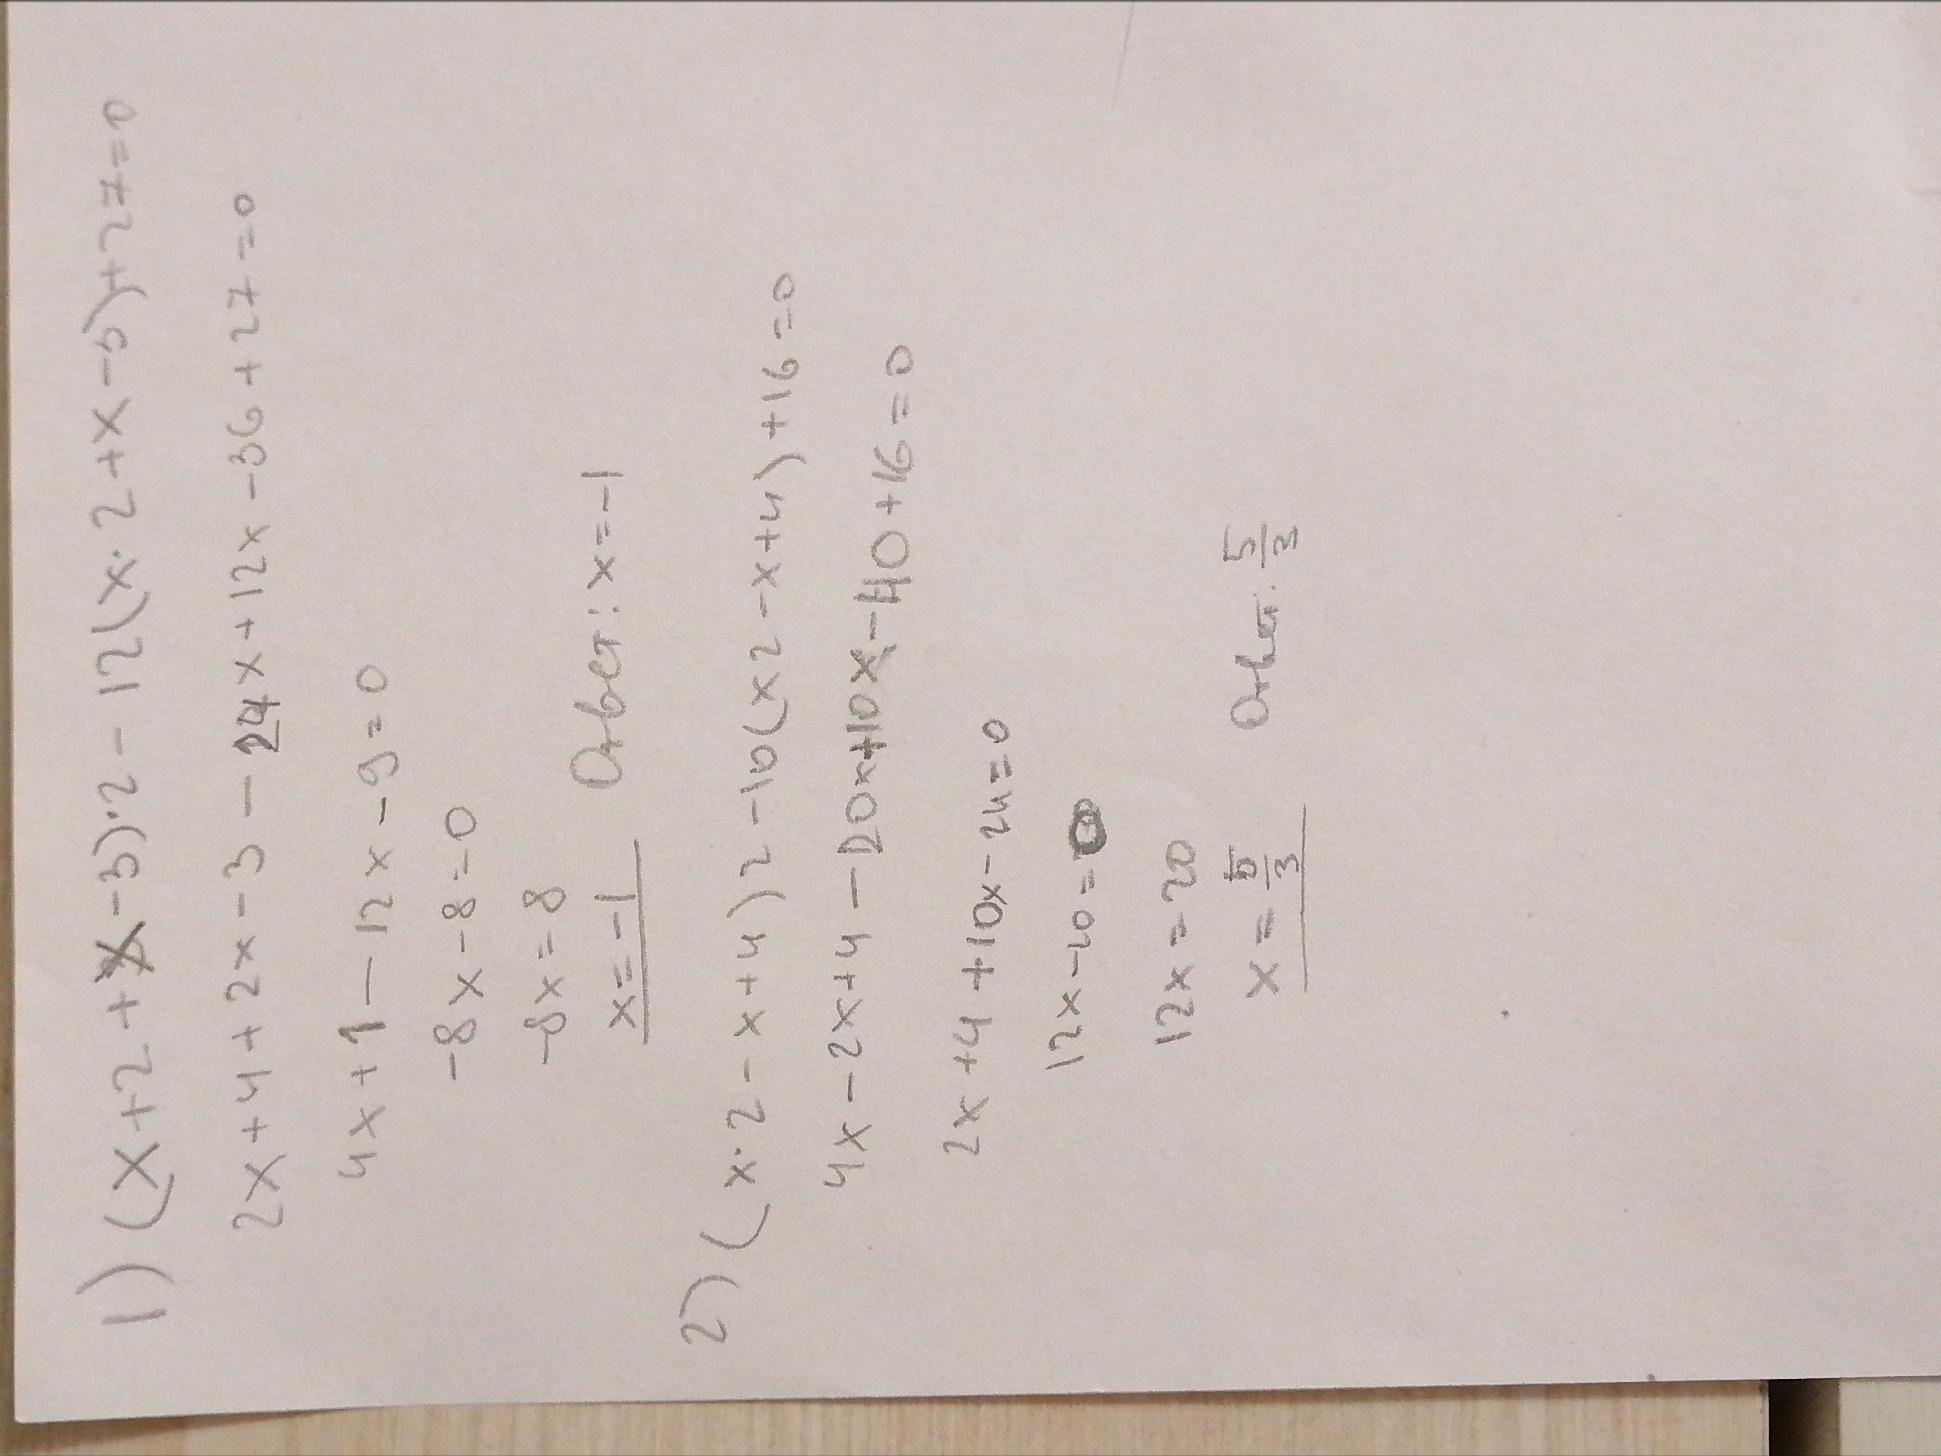 1) (x+2+x-3)·2-12(x·2+x-3)+27=0
2x+4+2x-3-24x+12x-36+27=0
4x+1-12x-9=0
-8x-8=0
-8x=8
x=-1 Ответ: x=-1
2) (x·2-x+4)2-10(x2-x+4)+16=0
4x-2x+4-20x+10x-40+16=0
2x+4+10x-24=0
12x-20=0
12x=20
x=5/3 Ответ: 5/3